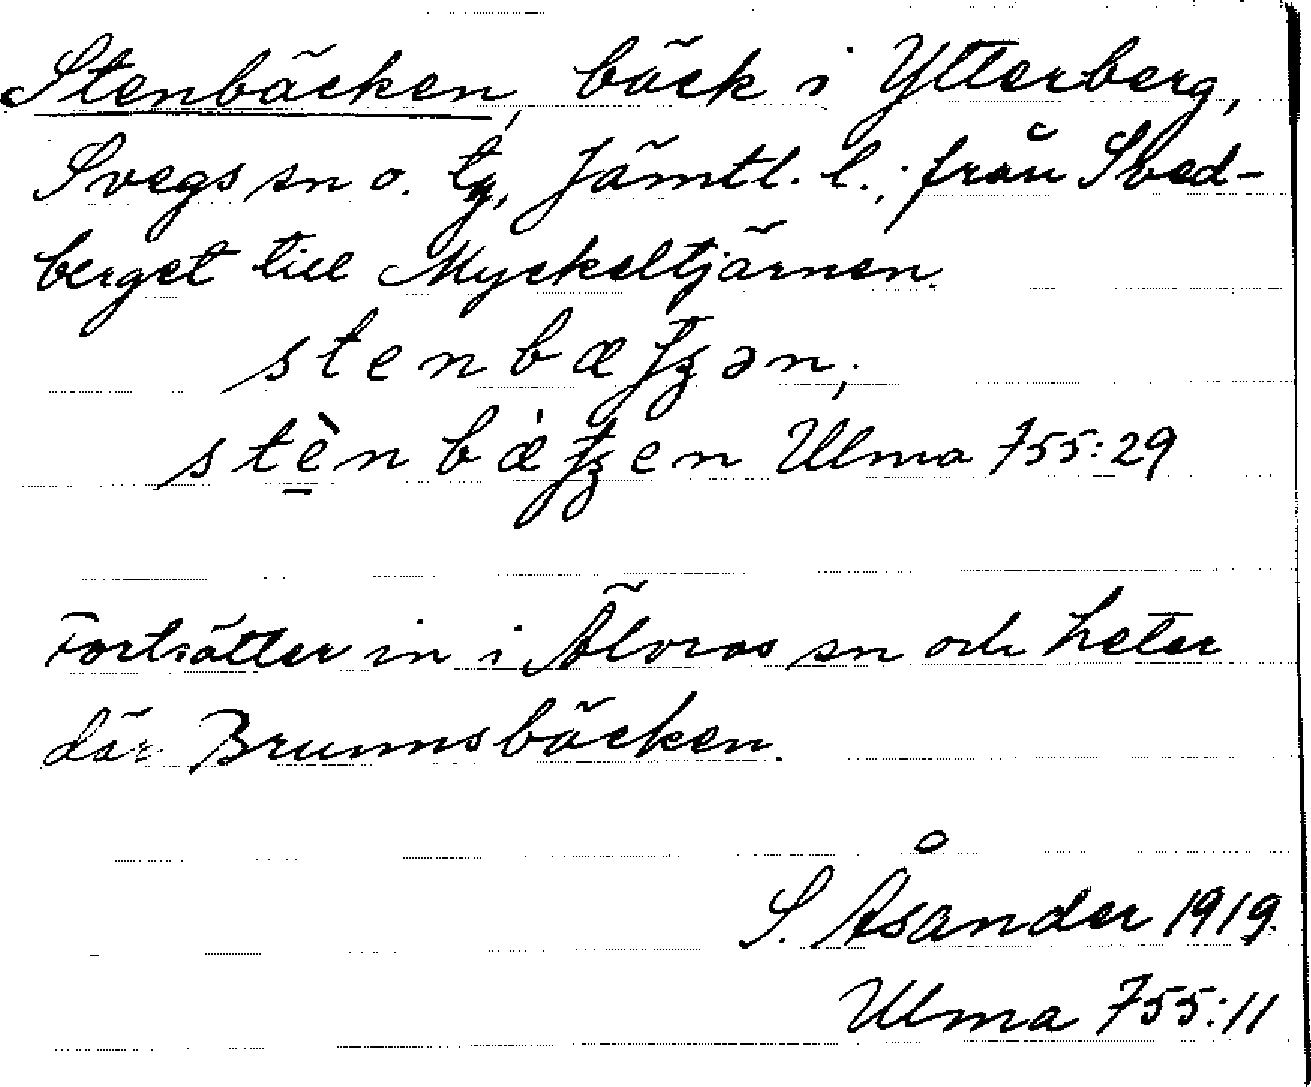 Stenbäcken, bäck i Ytterberg,
Svegs sn o. tg, Jämtl. l.; från Sved-
berget till Myckeltjärnen.
stenbæʈʂən;
stèn bæ̀ʈʂen Ulma 755:29
Fortsätter in i Älvros sn och heter
där Brunnsbäcken.
S. Åsander 1919.
Ulma 755:11